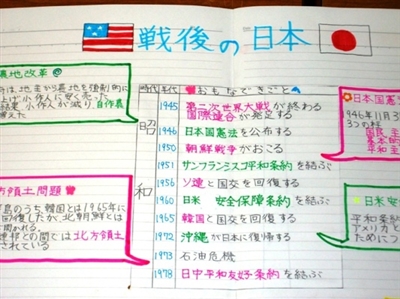 戦後の日本
農地改革
府は、地主から農地を強制的に
上げ小作人に安く売った
結果、小作人が減り、自作農
増えた
時代 年代 おもなできごと
昭和
1945 第二次世界大戦が終わる
国際連合が発足する
1946 日本国憲法を公布する
1950 朝鮮戦争がおこる
1951 サンフランシスコ平和条約を結ぶ
1956 ソ連と国交を回復する
1960 日米 安全保障条約を結ぶ
1965 韓国と国交を回復する
1972 沖縄が日本に復帰する
1973 石油危機
1978 日中平和友好条約を結ぶ
方領土問題
島のうち韓国とは1965年に
回復したが、北朝鮮とは
開かれる
連邦との間では北方領土
されている
日本国憲
1946年11月3
3つの柱
国民主
基本的
平和主
日米安全
平和条約
アメリカと
ためにつ